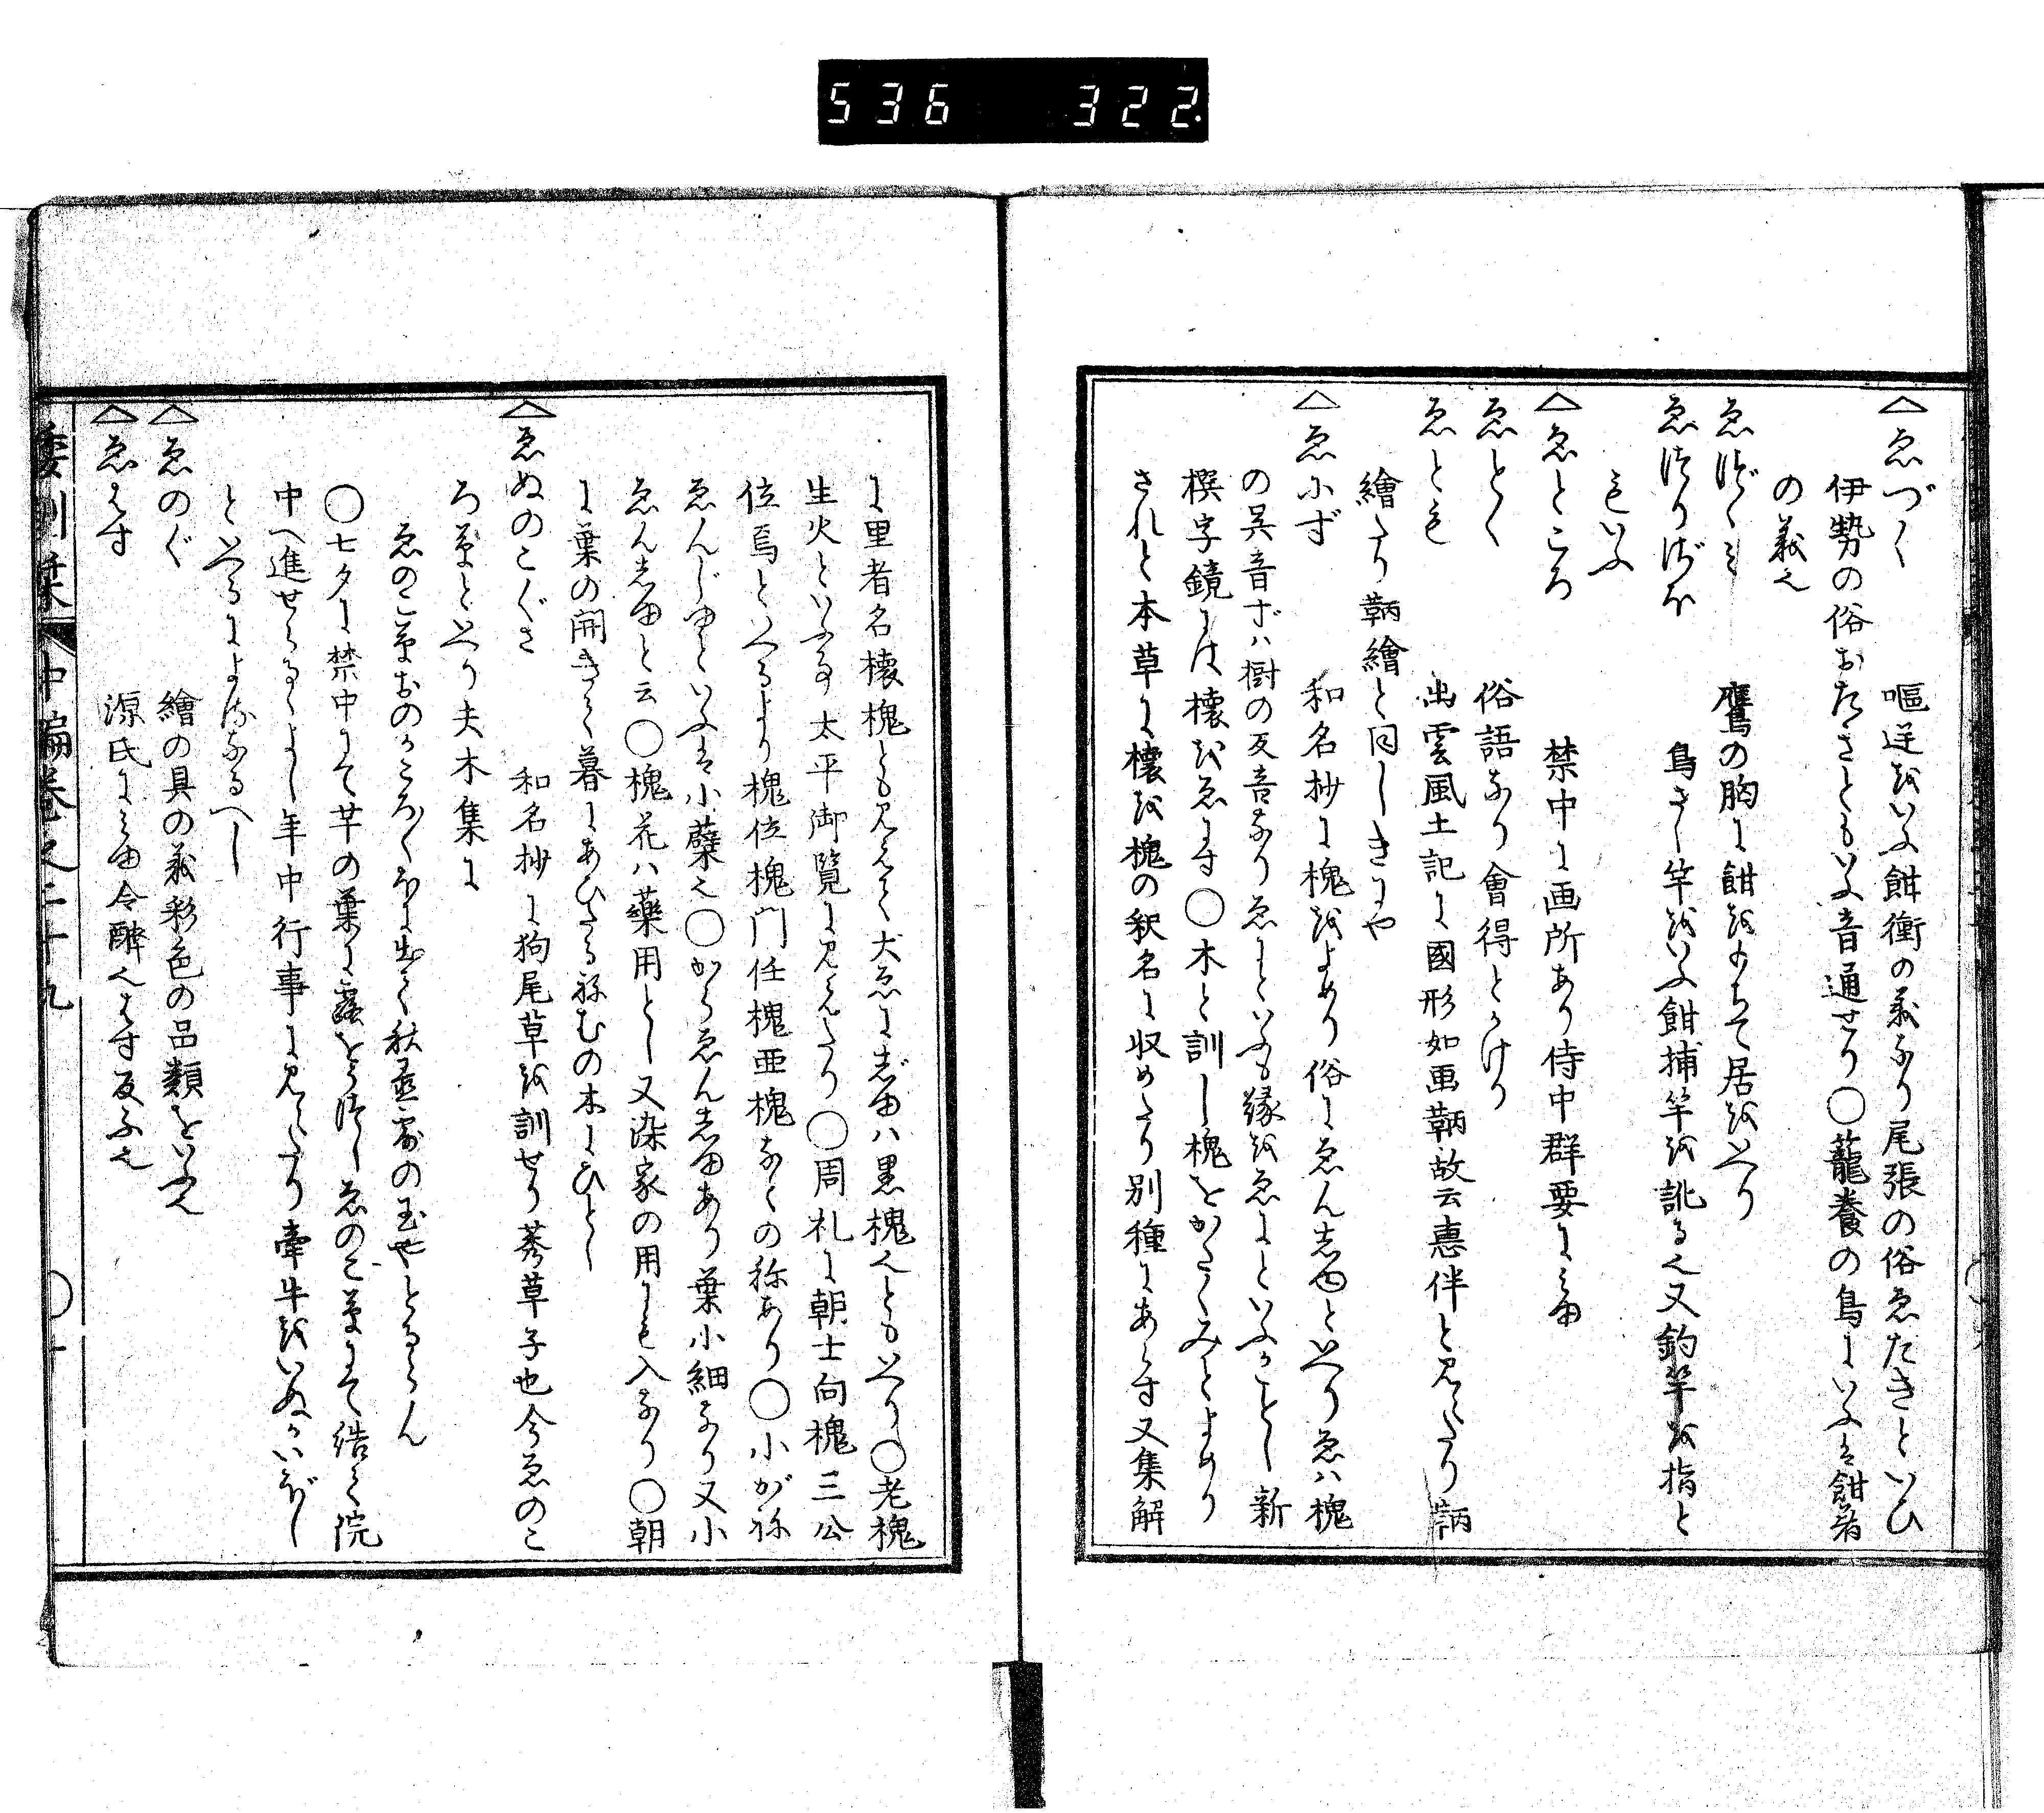 536 322
△ゑづく 嘔逆をいふ餌衝の義なり尾張の俗ゑたきといひ
伊勢の俗おたきともいふ音通せり○蘢養の鳥にいふは餌着
の義也
ゑづゝみ 鷹の胸に餌をもちて居をいへり
ゑつりざほ 鳥さし竿をいふ餌捕竿を訛る也又釣竿を指と
もいふ
△ゑところ 禁中に画所あり侍中群要にみゆ
ゑとく 俗語なり會得とかけり
ゑとも 出雲風土記に國形如画鞆故云惠伴と見えたり鞆
繪たり鞆繪と同しきにや
△ゑにず 和名抄に槐をよめり俗にゑん志ゆといへりゑハ槐
の呉音ずハ樹の反音なりゑにといふも縁をゑにといふかことし新
撰字鏡には櫰をゑにす○木と訓し槐をかたくみとよめり
されと本草に櫰を槐の釈名に収めたり別種にあらす又集解
に里者名櫰槐とも見えて犬ゑにじゆハ黒槐也ともいへり○老槐
生火といふ事太平御覧に見えたり○周礼に朝士向槐三公
位焉といへるより槐位槐門任槐亜槐なとの称あり○小がね
ゑんじゆといふは小蘗也○からゑん志ゆあり葉小細なり又小
ゑん志ゆと云○槐花ハ藥用とし又染家の用にも入なり○朝
に葉の開きて暮にあひたる祢むの木にひとし
△ゑぬのこぐさ 和名抄に狗尾草を訓せり莠草子也今ゑのこ
ろ草といへり夫木集に
ゑのこ草おのかころ〱ほに出て秋置露の玉やとるらん
○七夕に禁中にて芋の葉に露をうつしゑのこ草にて結て院
中へ進せらるゝよし年中行事に見えたり牽牛をいぬかいぼし
といへるによれるなるへし
△ゑのぐ 繪の具の義彩色の品類をいふ也
△ゑはす 源氏にみゆ令醉也はす反ふ也
倭訓栞 中編巻之二十九 ○十